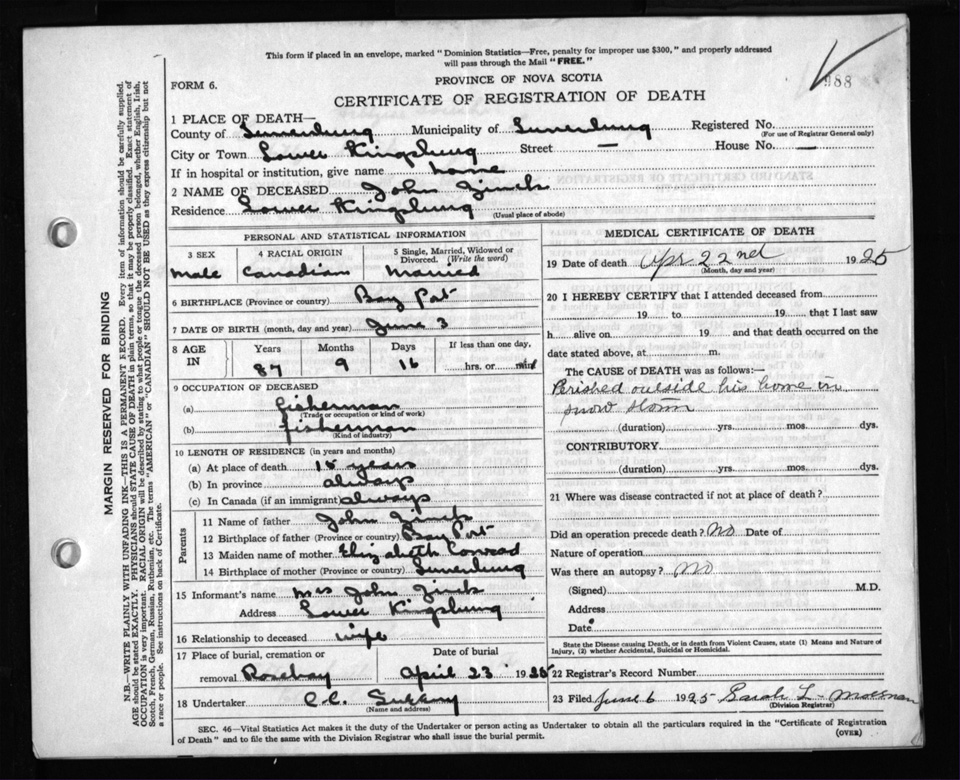 This form if placed in an envelope, marked "Dominion Statistics—Free, penalty for improper use $300," and properly addressed
will pass through the Mail "FREE."
988
FORM 6.
PROVINCE OF NOVA SCOTIA
CERTIFICATE OF REGISTRATION OF DEATH
1 PLACE OF DEATH—
County of Lunenburg Municipality of Lunenburg Registered No.
(For use of Registrar General only)
City or Town Lower Kingsburg Street — House No. —
If in hospital or institution, give name home
2 NAME OF DECEASED John Zinck
Residence Lower Kingsburg
(Usual place of abode)
PERSONAL AND STATISTICAL INFORMATION
3 SEX 4 RACIAL ORIGIN 5 Single, Married, Widowed or Divorced. (Write the word)
Male Canadian Married
6 BIRTHPLACE (Province or country) Bay Port
7 DATE OF BIRTH (month, day and year) June 3
8 AGE IN Years Months Days If less than one day,
87 9 16 hrs. or min
9 OCCUPATION OF DECEASED
(a) fisherman
(Trade or occupation or kind of work)
(b) fisherman
(Kind of industry)
10 LENGTH OF RESIDENCE (in years and months)
(a) At place of death 15 years
(b) In province always
(c) In Canada (if an immigrant) always
Parents
11 Name of father John Zinck
12 Birthplace of father (Province or country) Bay Port
13 Maiden name of mother Elizabeth Conrad
14 Birthplace of mother (Province or country) Lunenburg
15 Informant's name Mrs John Zinck
Address Lower Kingsburg
16 Relationship to deceased wife
17 Place of burial, cremation or removal Rosebay
Date of burial April 23 1925
18 Undertaker C.C.
(Name and address)
MEDICAL CERTIFICATE OF DEATH
19 Date of death Apr 22nd 1925
(Month, day and year)
20 I HEREBY CERTIFY that I attended deceased from
19 to 19 that I last saw
h alive on 19 and that death occurred on the
date stated above, at m.
The CAUSE of DEATH was as follows:—
Perished outside his home in
snow storm
(duration) yrs. mos. dys.
CONTRIBUTORY
(duration) yrs. mos. dys.
21 Where was disease contracted if not at place of death?
Did an operation precede death? No Date of
Nature of operation
Was there an autopsy? No
(Signed) M.D.
Address
Date
State the Disease causing Death, or in death from Violent Causes, state (1) Means and Nature of
Injury, (2) whether Accidental, Suicidal or Homicidal.
22 Registrar's Record Number
23 Filed June 6 1925 Sarah L.
(Division Registrar)
SEC. 46—Vital Statistics Act makes it the duty of the Undertaker or person acting as Undertaker to obtain all the particulars required in the "Certificate of Registration
of Death" and to file the same with the Division Registrar who shall issue the burial permit.
(OVER)
MARGIN RESERVED FOR BINDING
N.B.—WRITE PLAINLY WITH UNFADING INK—THIS IS A PERMANENT RECORD. Every item of information should be carefully supplied.
AGE should be stated EXACTLY. PHYSICIANS should STATE CAUSE OF DEATH in plain terms, so that it may be properly classified. Exact statement of
OCCUPATION is very important. RACIAL ORIGIN will be described by stating to what people or tongue the deceased person belonged, whether English, Irish,
Scotch, French, German, Russian, Ruthenian, etc. The terms "AMERICAN" or "CANADIAN" SHOULD NOT BE USED as they express citizenship but not
a race or people. See instructions on back of Certificate.